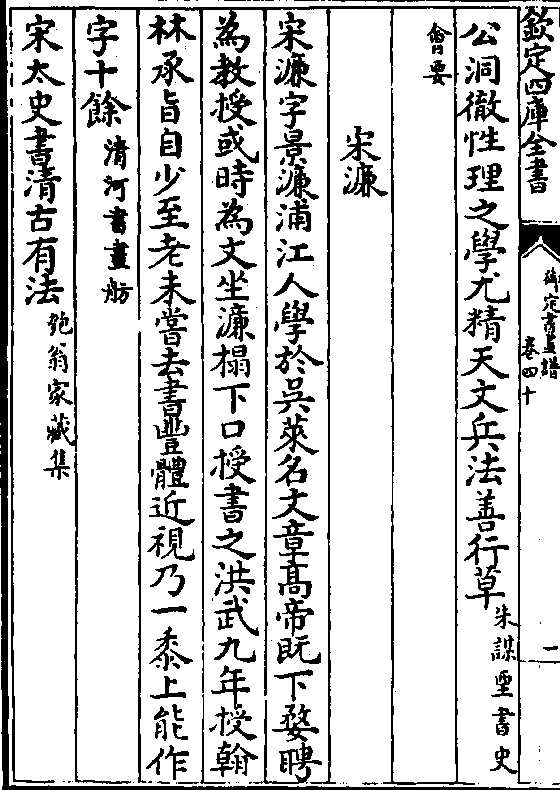 欽定四庫全書
御定書畫譜
卷四十
一
公洞徹性理之學尤精天文兵法善行草朱謀垔書史
會要
宋濂
宋濂字景濂浦江人學於吳萊名文章高帝既下婺聘
為教授或時為文坐濂榻下口授書之洪武九年授翰
林承旨自少至老未嘗去書豐體近視乃一黍上能作
字十餘清河書畫舫
宋太史書清古有法匏翁家藏集